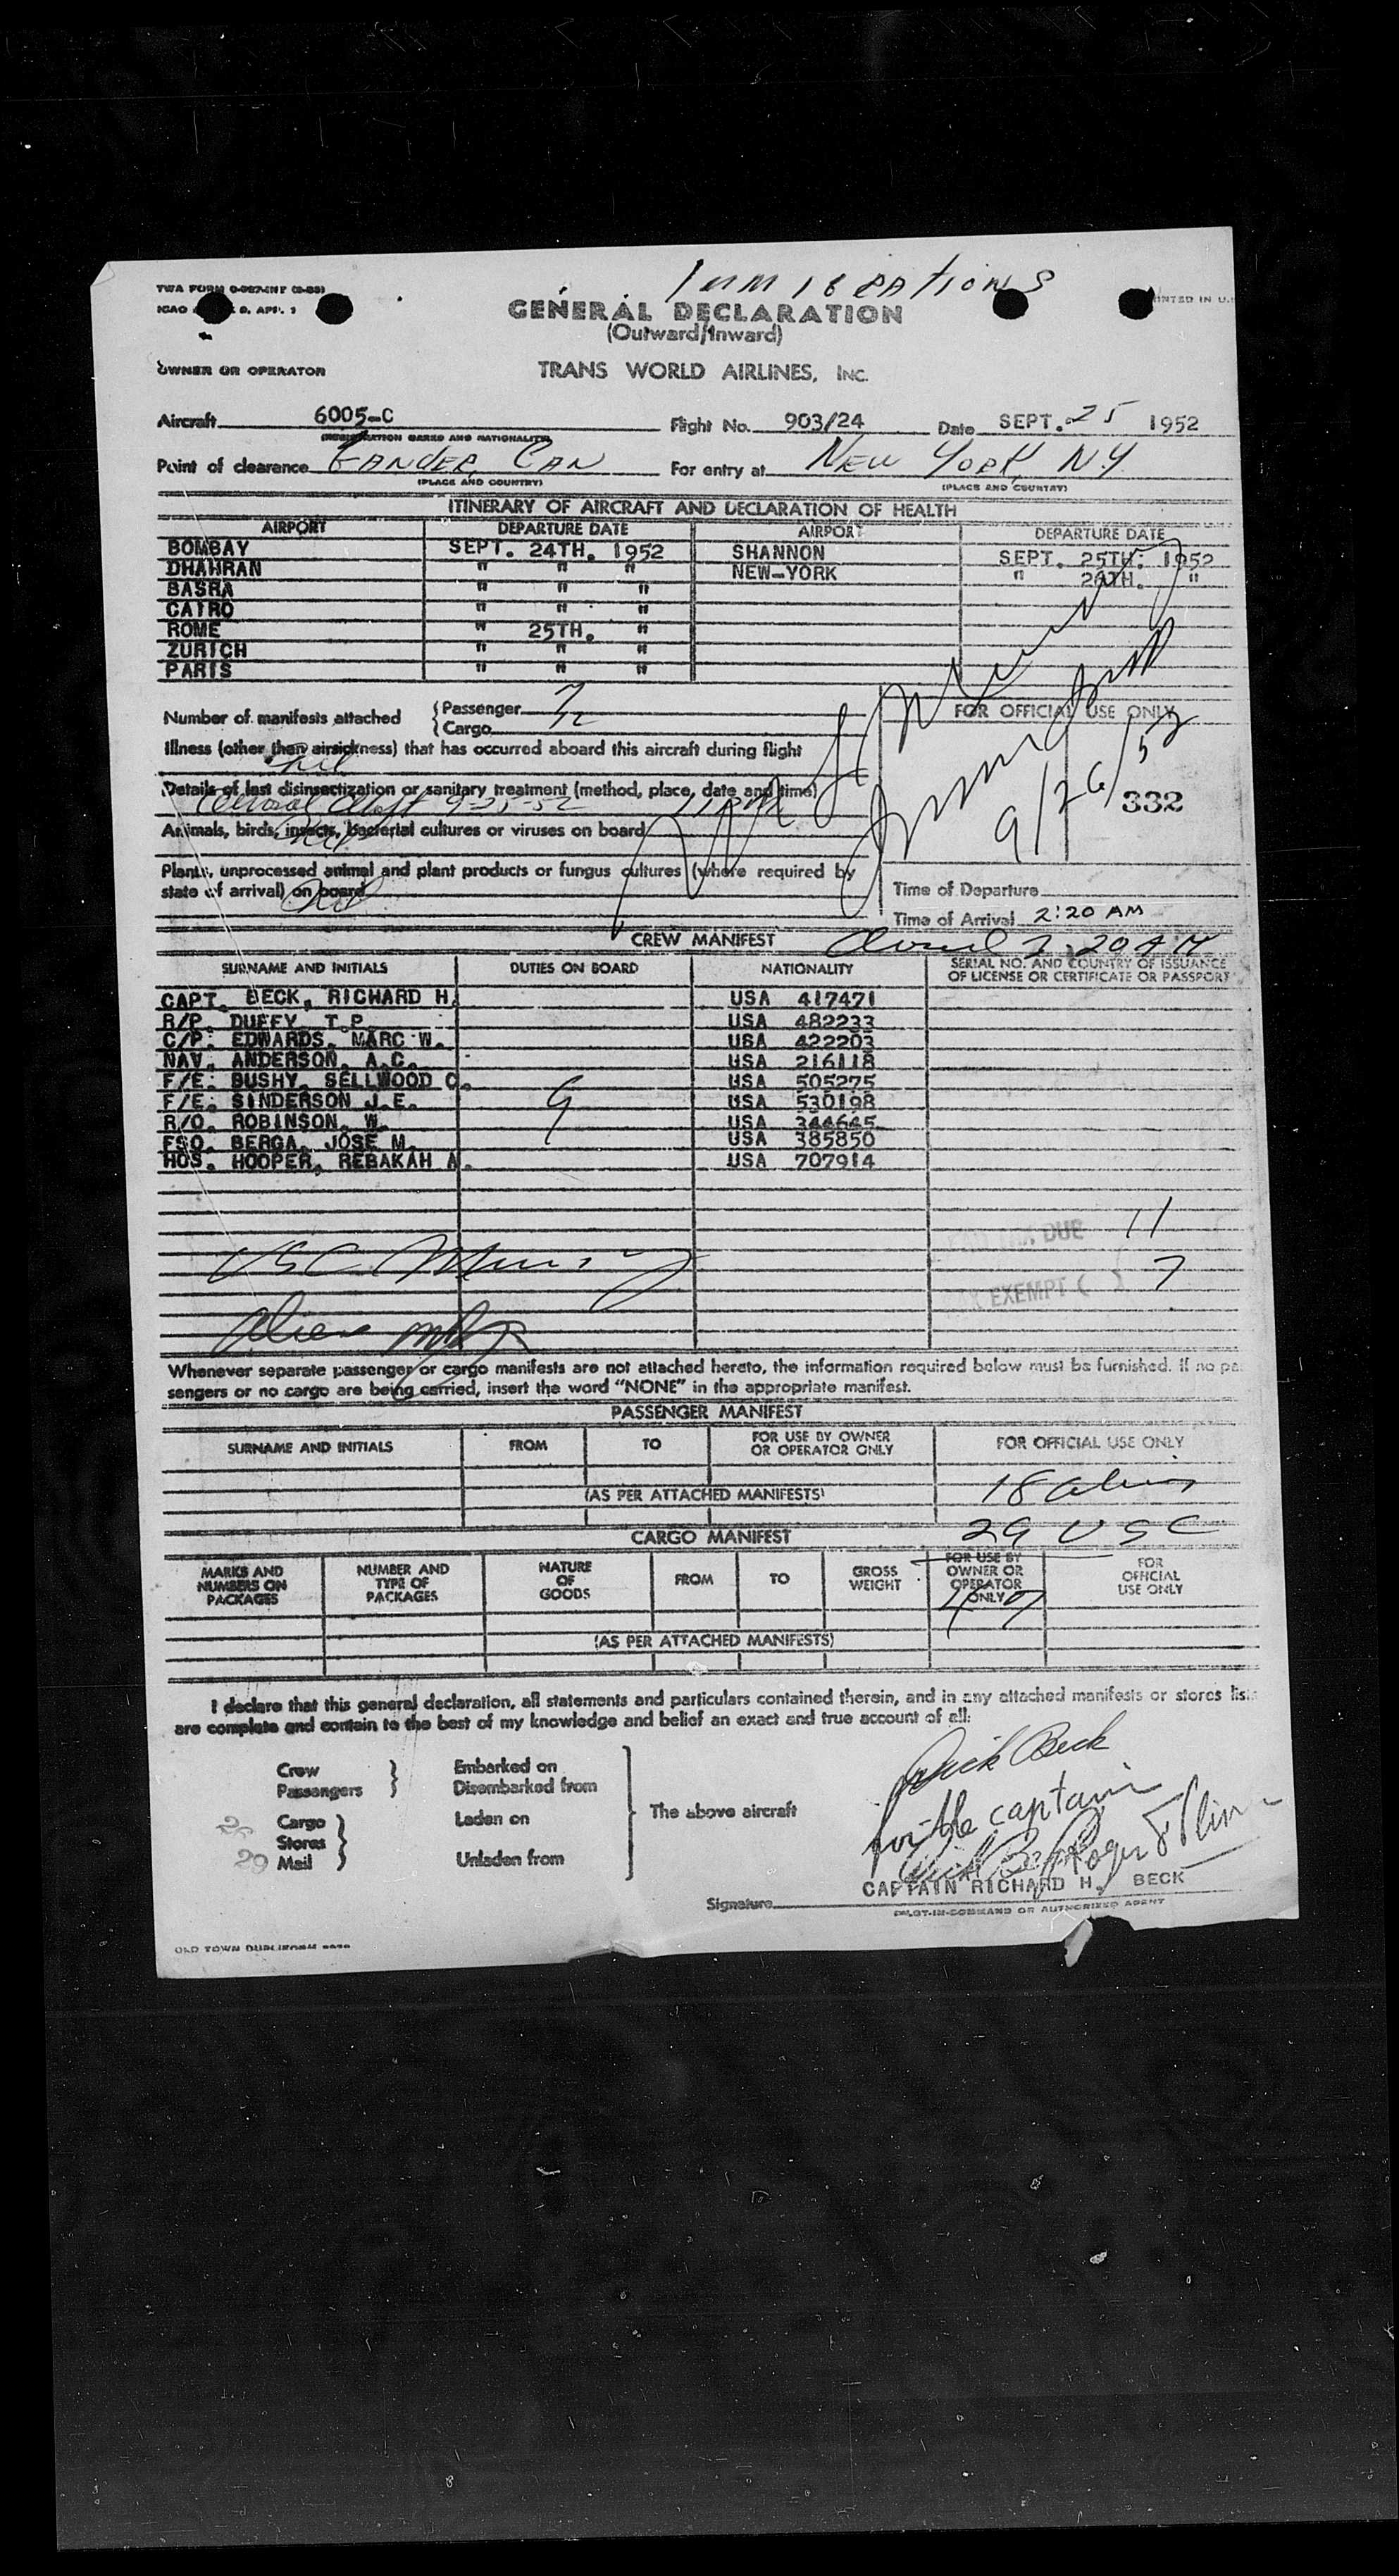 IMMIGRATIONS
TWA FORM
ICAO
PRINTED IN U.S
GENERAL DECLARATION
(Outward/Inward)
OWNER OR OPERATOR TRANS WORLD AIRLINES, INC.
Aircraft 6005-C Flight No. 903/24 Date SEPT. 25 1952
(REGISTRATION MARKS AND NATIONALITY)
Point of clearance GANDER, CAN For entry at NEW YORK, N.Y.
(PLACE AND COUNTRY) (PLACE AND COUNTRY)
ITINERARY OF AIRCRAFT AND DECLARATION OF HEALTH
AIRPORT DEPARTURE DATE AIRPORT DEPARTURE DATE
BOMBAY SEPT. 24TH. 1952 SHANNON SEPT. 25TH. 1952
DHAHRAN " " " NEW-YORK " 26TH. "
BASRA " " "
CAIRO " " "
ROME " 25TH. "
ZURICH " " "
PARIS " " "
Number of manifests attached { Passenger 7
{ Cargo
FOR OFFICIAL USE ONLY
Illness (other than airsickness) that has occurred aboard this aircraft during flight
nil
Details of last disinsectization or sanitary treatment (method, place, date and time)
9-25-52
9/26/52
332
Animals, birds, insects, bacterial cultures or viruses on board
nil
Plants, unprocessed animal and plant products or fungus cultures (where required by
state of arrival) on board nil
Time of Departure
Time of Arrival 2:20 AM
CREW MANIFEST 2:20 AM
SURNAME AND INITIALS DUTIES ON BOARD NATIONALITY SERIAL NO. AND COUNTRY OF ISSUANCE
OF LICENSE OR CERTIFICATE OR PASSPORT
CAPT. BECK, RICHARD H. USA 417471
R/P. DUFFY, T.P. USA 482233
C/P. EDWARDS, MARC W. USA 422203
NAV. ANDERSON, A.C. USA 216118
F/E. BUSHY, SELLWOOD C. USA 505275
F/E. SINDERSON J.E. 9 USA 530198
R/O. ROBINSON, W. USA 344645
FSO. BERGA, JOSE M. USA 385850
HOS. HOOPER, REBAKAH A. USA 707914
DUE 11
EXEMPT ( ) 7
USC
Whenever separate passenger or cargo manifests are not attached hereto, the information required below must be furnished. If no pas
sengers or no cargo are being carried, insert the word "NONE" in the appropriate manifest.
PASSENGER MANIFEST
SURNAME AND INITIALS FROM TO FOR USE BY OWNER
OR OPERATOR ONLY FOR OFFICIAL USE ONLY
18 aliens
(AS PER ATTACHED MANIFESTS)
CARGO MANIFEST 29 USC
MARKS AND
NUMBERS ON
PACKAGES NUMBER AND
TYPE OF
PACKAGES NATURE
OF
GOODS FROM TO GROSS
WEIGHT FOR USE BY
OWNER OR
OPERATOR
ONLY FOR
OFFICIAL
USE ONLY
47
(AS PER ATTACHED MANIFESTS)
I declare that this general declaration, all statements and particulars contained therein, and in any attached manifests or stores lists
are complete and contain to the best of my knowledge and belief an exact and true account of all:
Crew } Embarked on
Passengers } Disembarked from
Cargo } Laden on The above aircraft
Stores }
29 Mail } Unladen from
Dick Beck
for the captain
CAPTAIN RICHARD H. BECK
Signature
PILOT-IN-COMMAND OR AUTHORIZED AGENT
OLD TOWN